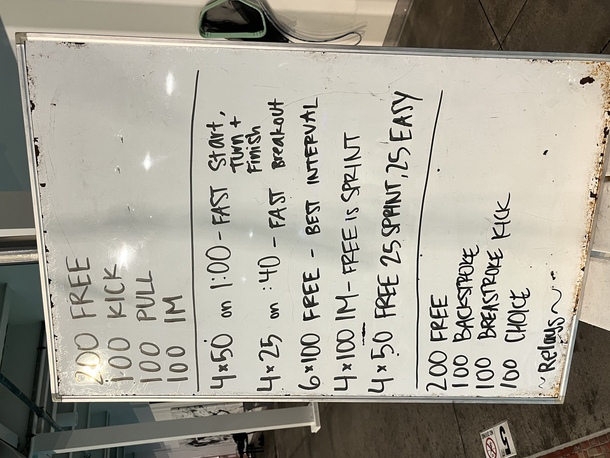 200 FREE
100 KICK
100 PULL
100 IM
4x50 on 1:00 - FAST Start,
Turn +
Finish
4x25 on :40 - FAST Breakout
6x100 FREE - BEST INTERVAL
4x100 IM - FREE is SPRINT
4x50 FREE 25 SPRINT, 25 EASY
200 FREE
100 BACKSTROKE
100 BREASTROKE KICK
100 CHOICE
~Relays~